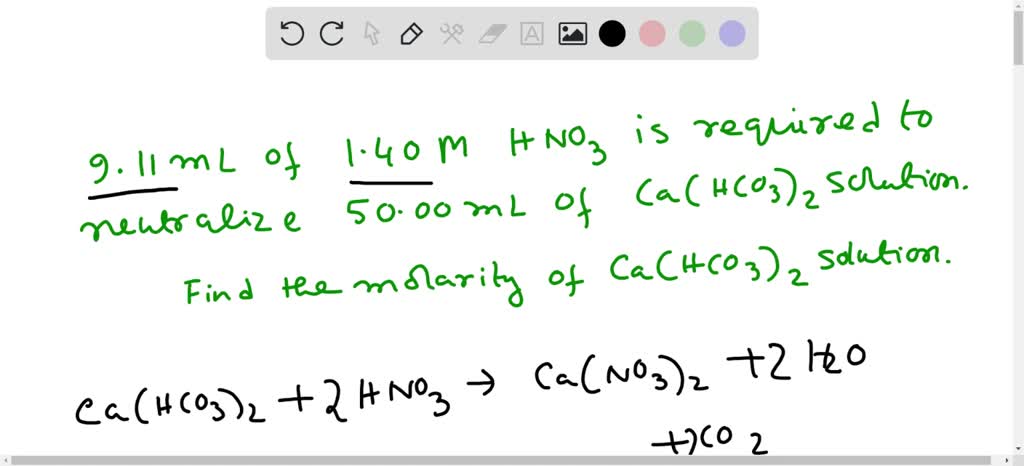 9.11 mL of 1.40 M HNO3 is required to
neutralize 50.00 mL of Ca(HCO3)2 solution.
Find the molarity of Ca(HCO3)2 solution.
Ca(HCO3)2 + 2HNO3 → Ca(NO3)2 + 2H2O
+2CO2